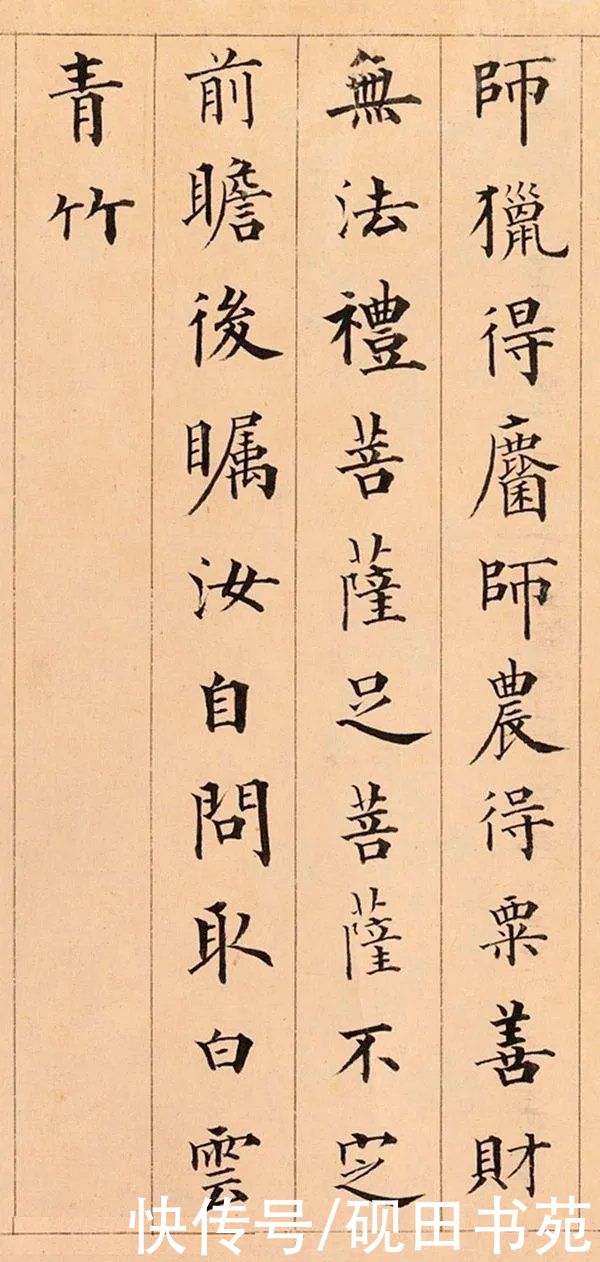 師獵得麕師農得粟善財
無法禮菩薩足菩薩不定
前瞻後矚汝自問取白雲
青竹
快传号/砚田书苑